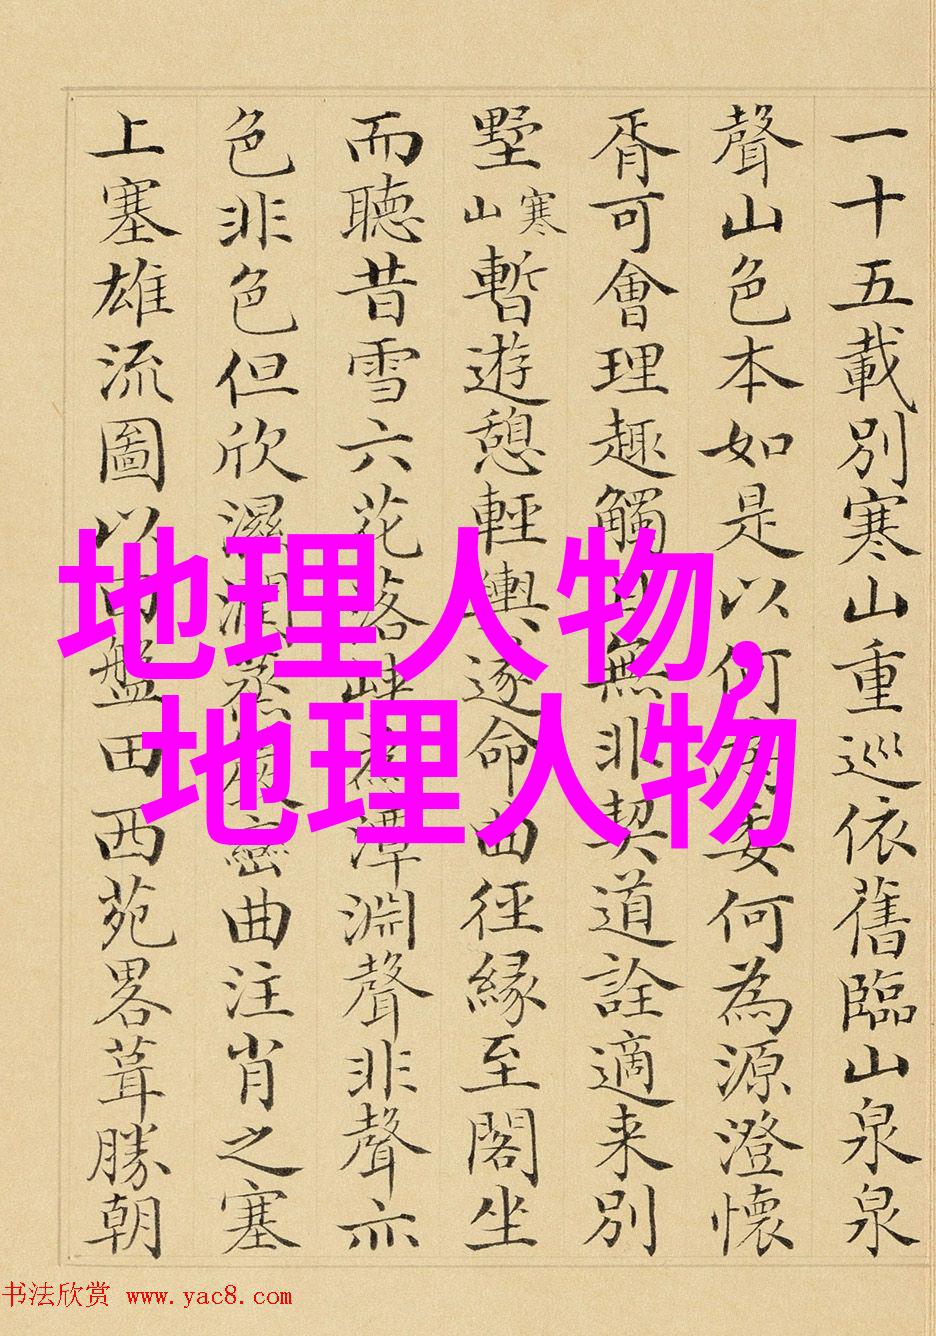 一十五載別寒山重巡依舊臨山泉泉
聲山色本如是以何為委何為源澄懷
胥可會理趣觸目無非契道詮適来別
墅寒山暫遊憩輕輿遂命曲徑緣至閣坐
而聽昔雪六花落
潭淵聲非聲亦
色非色但欣濕潤蒸
巒曲注肖之塞
上塞雄流圖以
盤田西苑畧葺勝朝
地理人物,
地理人物
书法欣赏 www.yac8.com